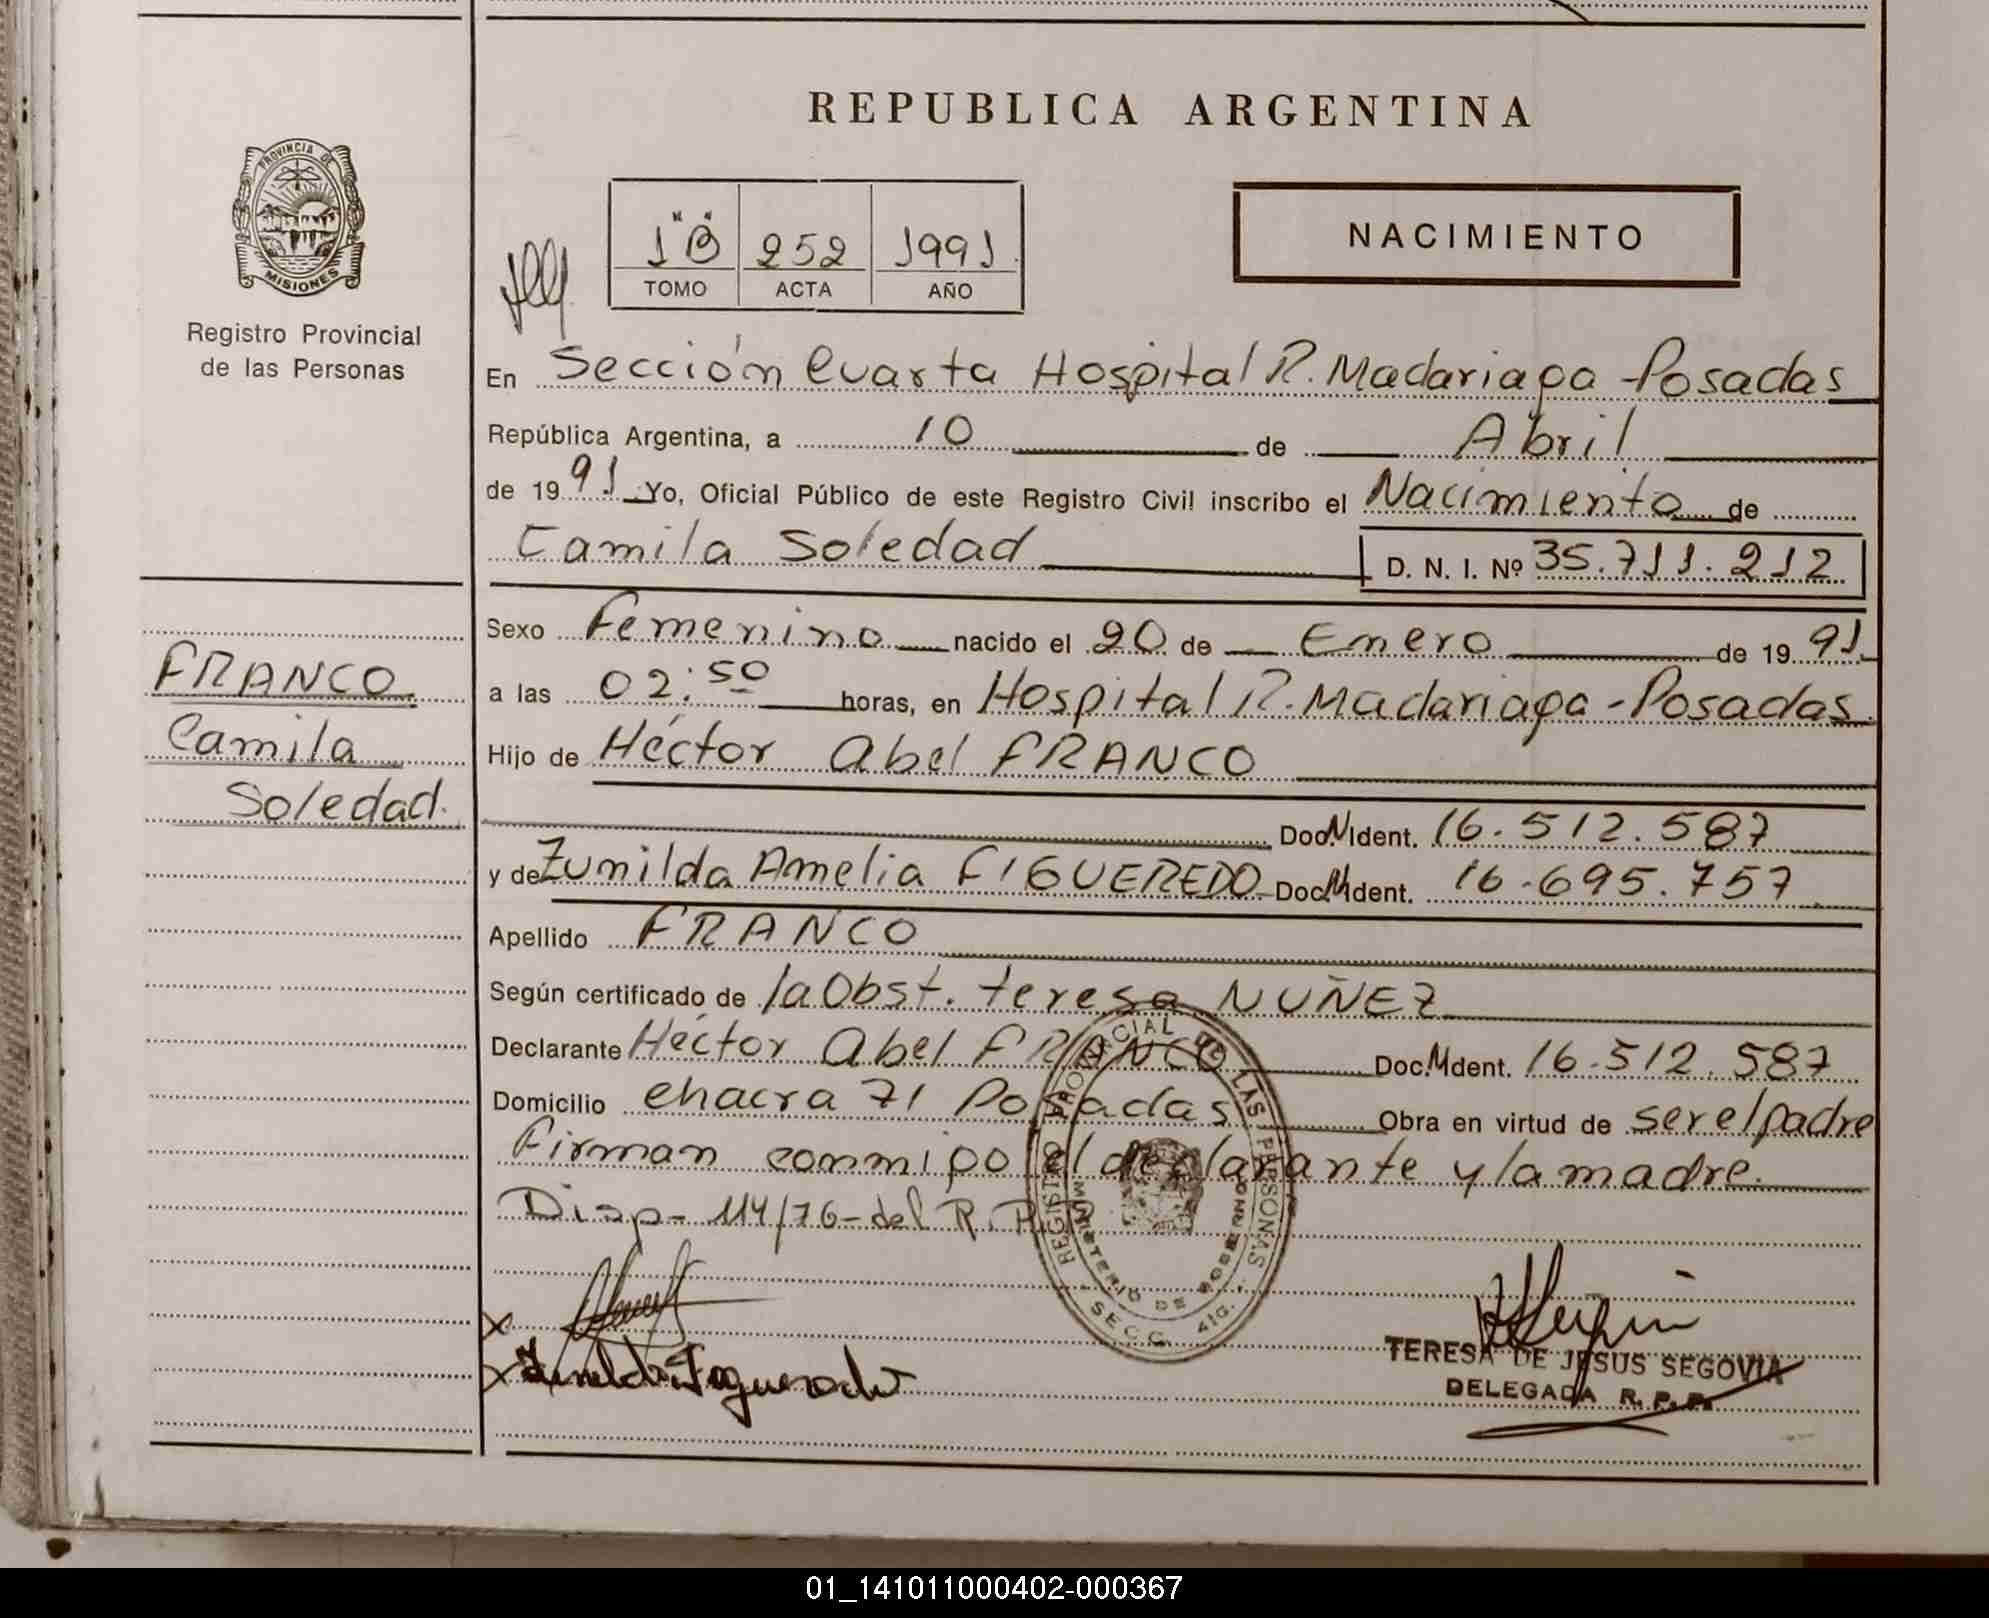 REPUBLICA ARGENTINA
PROVINCIA DE
MISIONES
Registro Provincial
de las Personas
1 "B" 252 1991
TOMO ACTA AÑO
NACIMIENTO
En Sección Cuarta Hospital R. Madariaga - Posadas
República Argentina, a 10 de Abril
de 1991 Yo, Oficial Público de este Registro Civil inscribo el Nacimiento de
Camila Soledad D. N. I. Nº 35.711.212
Sexo Femenino nacido el 20 de Enero de 1991
a las 02:50 horas, en Hospital R. Madariaga - Posadas
Hijo de Héctor Abel FRANCO
Doc. N Ident. 16.512.587
y de Zunilda Amelia FIGUEREDO Doc. N Ident. 16.695.757
Apellido FRANCO
Según certificado de la Obst. teresa NUÑEZ
Declarante Héctor Abel FRANCO Doc. N Ident. 16.512.587
Domicilio chacra 71 Posadas Obra en virtud de ser el padre
Firman conmigo el declarante y la madre.
Disp- 114/76- del R.P.P.
FRANCO
Camila
Soledad.
REGISTRO PROVINCIAL DE LAS PERSONAS
MINISTERIO DE GOBIERNO
SECC. 4ta.
X
X Zunilda Figueredo
TERESA DE JESUS SEGOVIA
DELEGADA R. P. P.
01_141011000402-000367